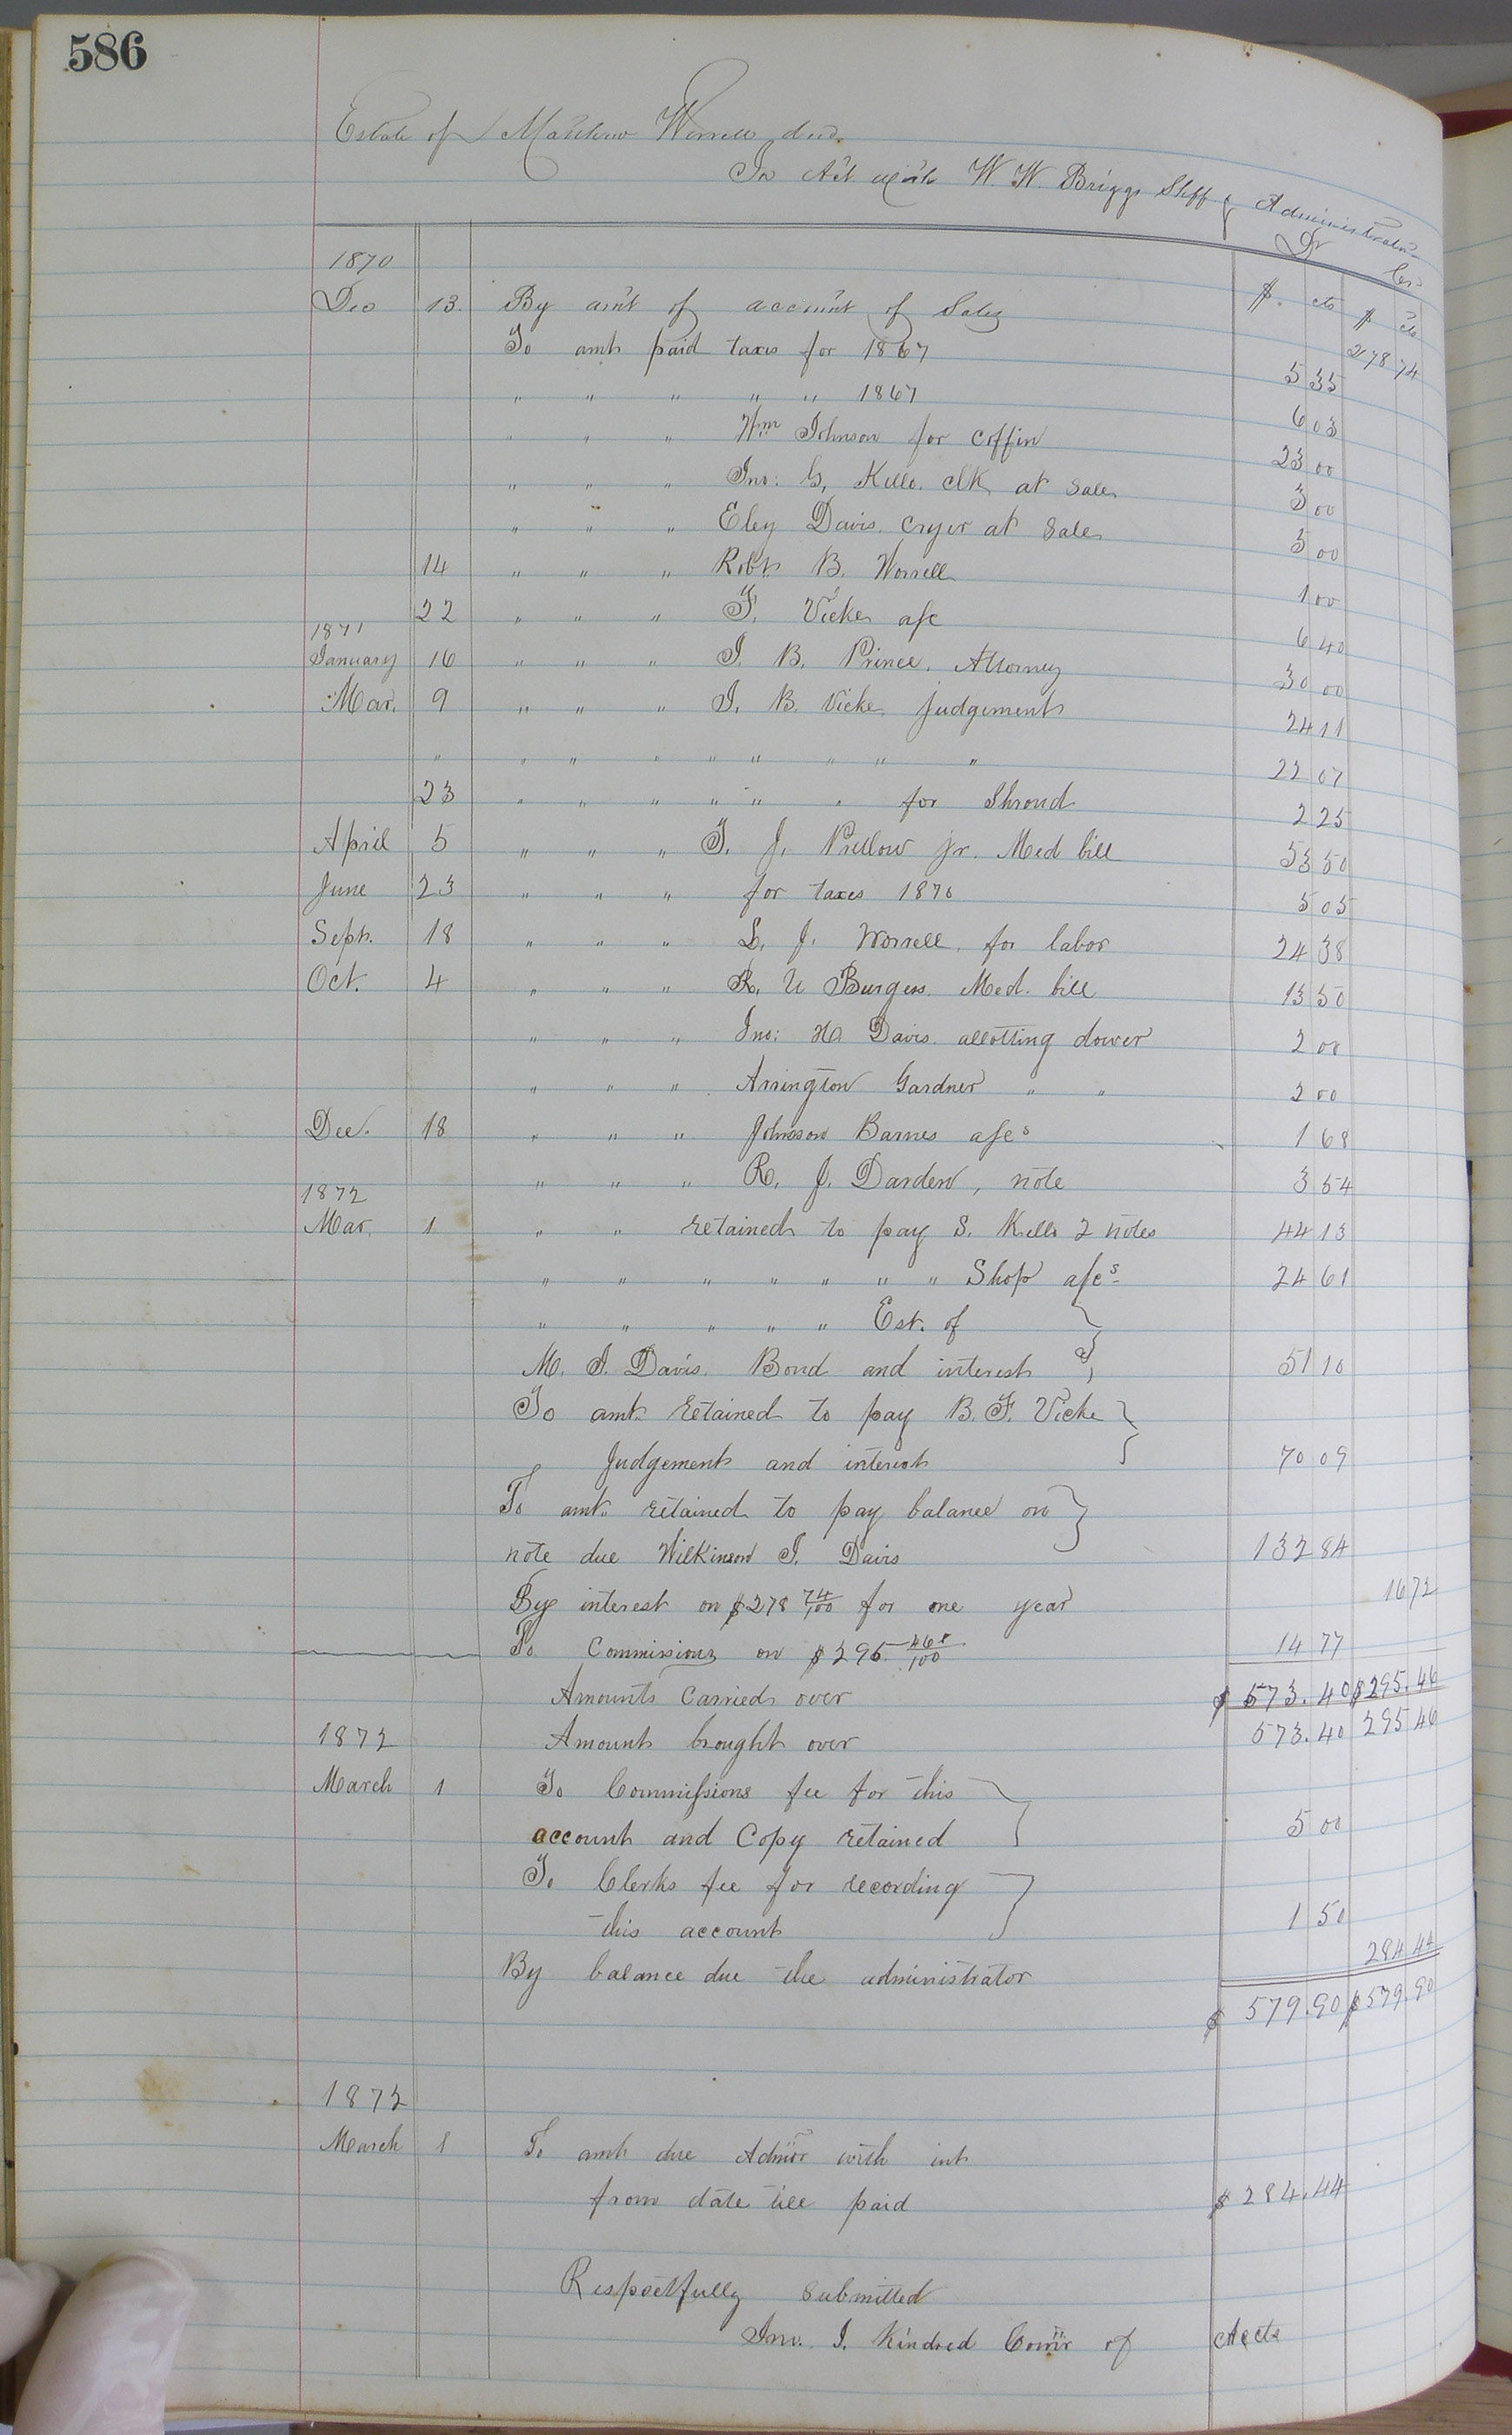 586
Estate of Matthew Worrell decd.
In Act with W. W. Briggs Shff & Administrator
Dr Cr.
1870 $. cts $ cts
Dec 13. By am't of account of Sales 278 74
To amt paid taxes for 1867 5 35
" " " " " 1867 6 03
" " " Wm Johnson for coffin 23 00
" " " Jno: G, Kello. clk at Sale 3 00
" " " Eley Davis. Cryer at Sale 5 00
14 " " " Robt. B. Worrell 1 00
22 " " " F. Vicke a/c 6 40
1871
January 16 " " " J. B. Prince. Attorney 30 00
Mar. 9 " " " J. B. Vicke. Judgement 24 11
" " " " " " " " " 22 07
23 " " " " " " for Shroud 2 25
April 5 " " " T. J. Pretlow jr. Med bill 53 50
June 23 " " " for taxes 1870 5 05
Sept. 18 " " " L. J. Worrell. for labor 24 38
Oct. 4 " " " R. U Burgess. Med. bill 13 50
" " " Jno: H. Davis. allotting dower 2 00
" " " Arrington Gardner " " 2 00
Dec. 18 " " " Johnson Barnes a/cs 1 68
" " " R. J. Darden, note 3 54
1872
Mar. 1 " " retained to pay S. Kello 2 notes 44 13
" " " " " " " Shop a/cs 24 61
" " " " " Est. of
M. J. Davis. Bond and interest 51 10
To amt. retained to pay B. F. Vicke
Judgement and interest 70 09
To amt. retained to pay balance on
note due Wilkinson J. Davis 132 84
By interest on $278 74/100 for one year 16 72
To Commissions on $295. 46/100 14 77
Amounts Carried over $ 573. 40 $295. 46
1872 Amount brought over 573. 40 295 46
March 1 To Commissions fee for this
account and Copy retained 5 00
To Clerks fee for recording
this account 1 50
By balance due the administrator 284 44
$ 579.90 $579.90
1872
March 1 To amt due Admor with int
from date till paid $ 284.44
Respectfully Submitted
Jno. J. Kindred Comr of Accts